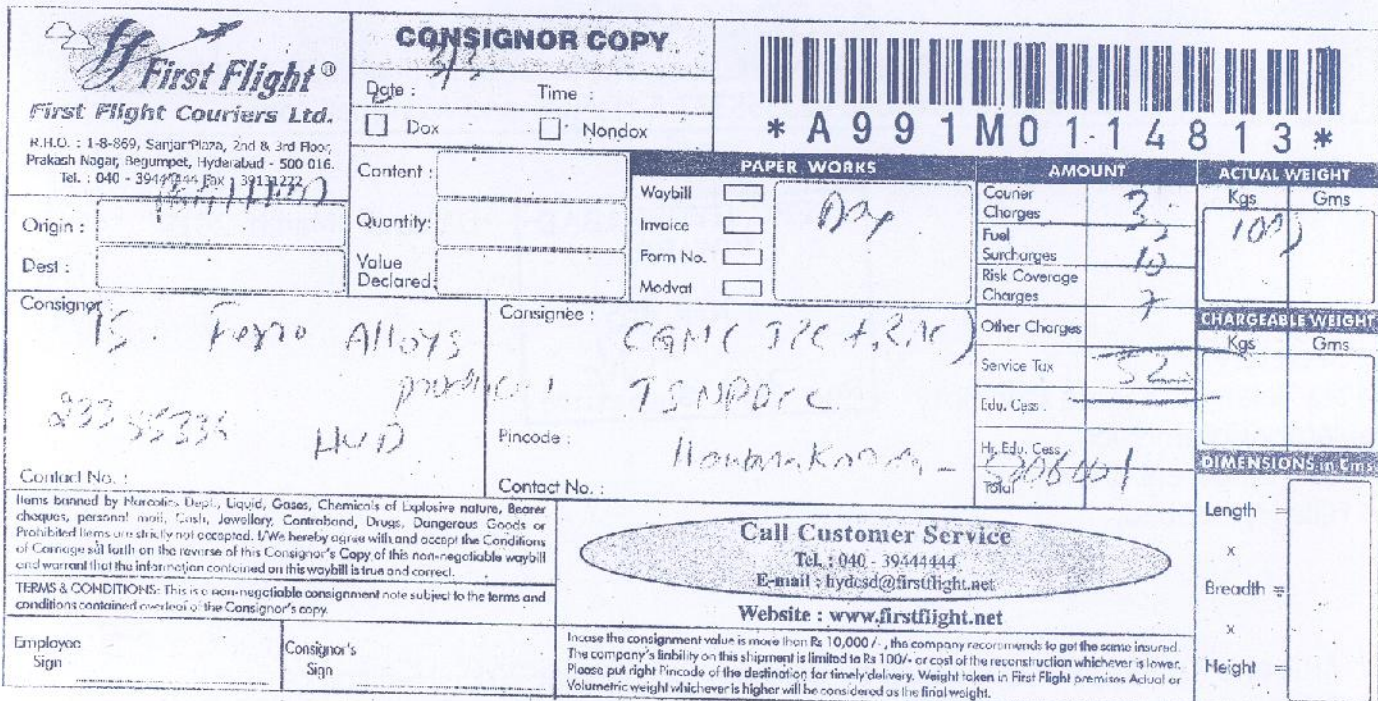 First Flight ®
First Flight Couriers Ltd.
R.H.O. : 1-8-869, Sanjar Plaza, 2nd & 3rd Floor,
Prakash Nagar, Begumpet, Hyderabad - 500 016.
Tel. : 040 - 39444444 Fax : 39131222
Origin :
Dest :
CONSIGNOR COPY
Date : 3/3 Time :
Dox Nondox
Content :
Quantity:
Value
Declared:
*A991M0114813*
PAPER WORKS
Waybill
Invoice
Form No.
Modvat
AMOUNT
Courier
Charges
Fuel
Surcharges 10
Risk Coverage
Charges 7
Other Charges
Service Tax 52
Edu. Cess :
Hr. Edu. Cess
Total
ACTUAL WEIGHT
Kgs Gms
CHARGEABLE WEIGHT
Kgs Gms
DIMENSIONS in Cms
Length =
x
Breadth =
x
Height =
Consignor
Ferro Alloys
HYD
Contact No. :
Consignee :
TSNPDCL
Pincode :
Contact No. :
Items banned by Narcotics Dept., Liquid, Gases, Chemicals of Explosive nature, Bearer
cheques, personal mail, Cash, Jewellery, Contraband, Drugs, Dangerous Goods or
Prohibited Items are strictly not accepted. I/We hereby agree with and accept the Conditions
of Carriage set forth on the reverse of this Consignor's Copy of this non-negotiable waybill
and warrant that the information contained on this waybill is true and correct.
TERMS & CONDITIONS: This is a non-negotiable consignment note subject to the terms and
conditions contained overleaf of the Consignor's copy.
Employee
Sign
Consignor's
Sign
Call Customer Service
Tel. : 040 - 39444444
E-mail : hydcsd@firstflight.net
Website : www.firstflight.net
Incase the consignment value is more than Rs 10,000/-, the company recommends to get the same insured.
The company's liability on this shipment is limited to Rs 100/- or cost of the reconstruction whichever is lower.
Please put right Pincode of the destination for timely delivery. Weight taken in First Flight premises Actual or
Volumetric weight whichever is higher will be considered as the final weight.